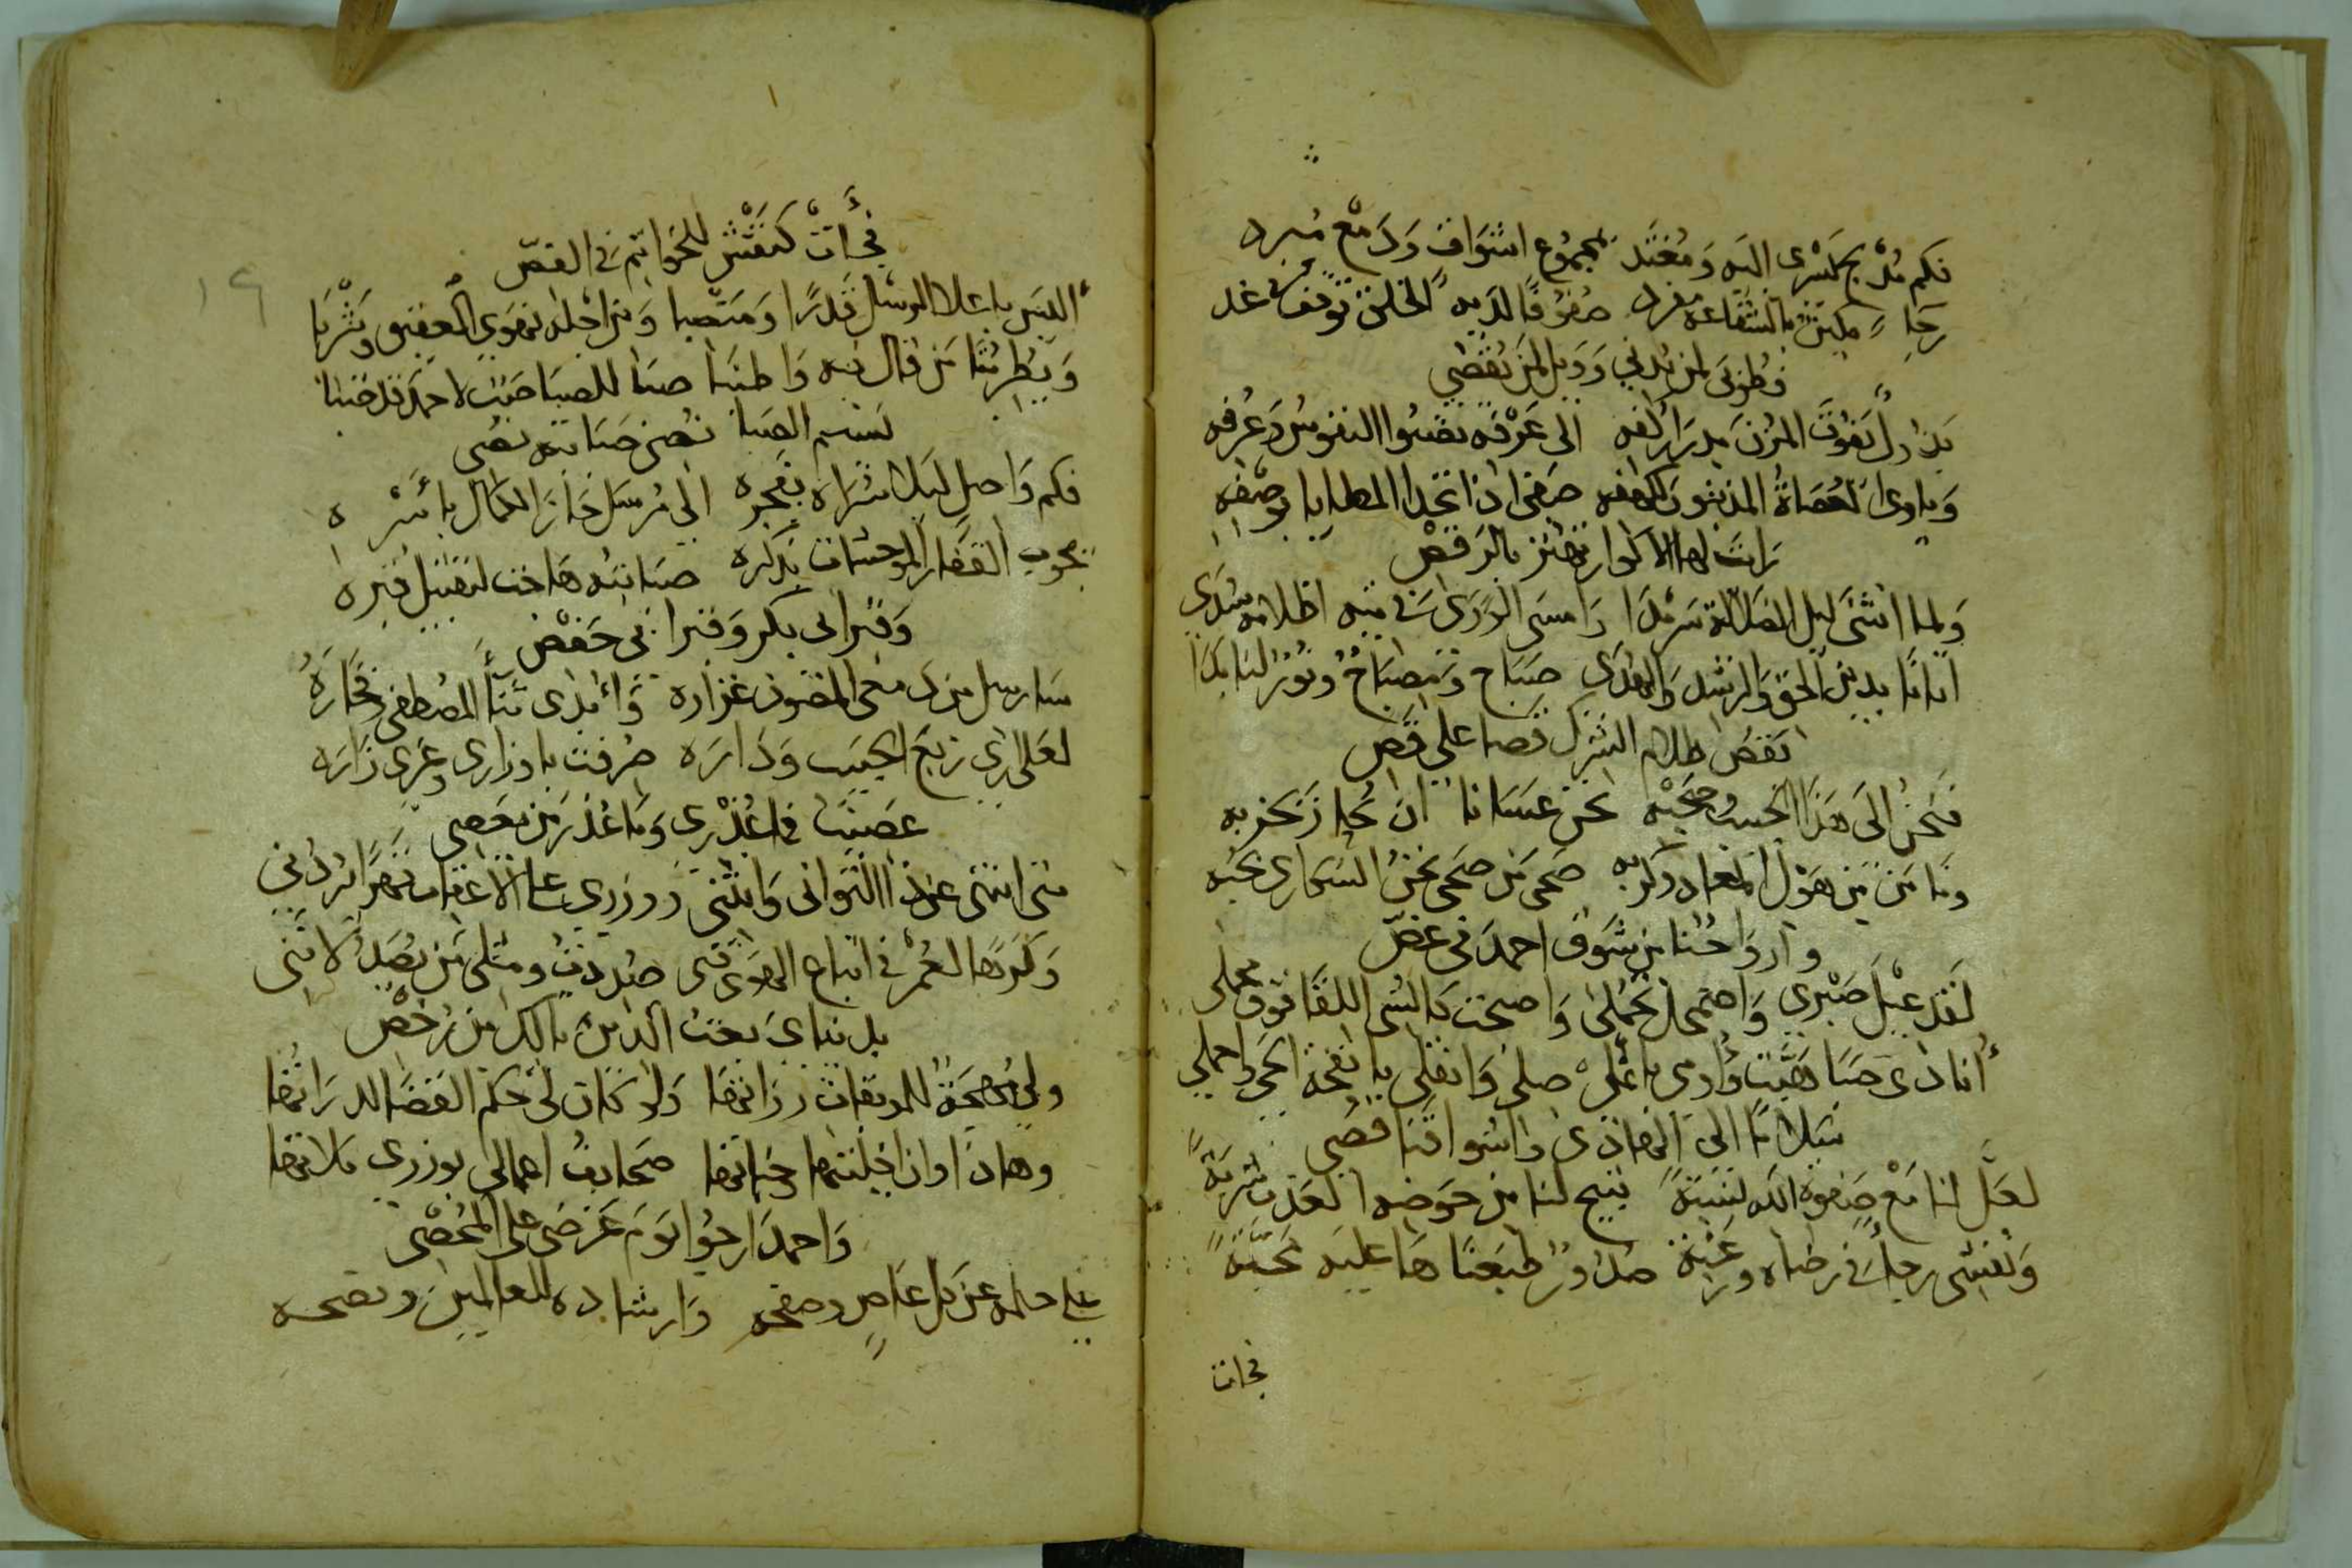 فكم مدلج يسري اليه ومغتد بمجموع اشواق ودمع مبرد
رجاء مليئ بالشفاعة مفرد صفوفا لديه الخلق توقف في غد
فطوبى لمن يدني وويل لمن يقصي
بذا دل يفوق المزن مدرار كفه الى عرفه تصبوا النفوس وعرفه
وياوى العصاة المذنبون لكهفه صفى اذا تحدا المطايا بوصفه
رايت لها الاكوار تهتز بالرقص
ولما انثنى ليل الضلالة سرمدا وامسى الورى في تيه اظلامه سدى
اتانا بدين الحق والرشد والهدى صباح ومصباح ونور لنا بدا
تقص ظلام الشرك قصا على قص
فنحن الى هذا الحبيب وصحبه نحن عسانا ان نحاز بحزبه
ونامن من هول المعاد وكربه صحى من صحى نحن السكارى بحبه
وارواحنا من شوق احمد في غص
لقد عيل صبري واضمحل تحملي واصبحت كالشى اللقا فوق محملى
انادى صبا هبت وادمى باعلى صلى وانقلى يا نفحة الحى واحملي
سلاما الى الهاذى واشواقنا قصى
لعل لنا مع صفوة الله نسبة يبيح لنا من حوضه العذب شربة
ونفسى رجا في رضاه ورغبة صدور طبعناها عليه محبة
فجات
فجأت كنقش للخواتم في الفص
اليس باعلا الرسل قدرا ومنصبا ومن اجله نهوى العقيق ويثربا
ويطربنا من قال فيه واطنبا صبا للصبا صب لاحمد قد صبا
نسيم الصبا نصت صبابته نصى
فكم واصل ليلا سراه بفجره الى مرسل حاز الكمال باسره
يجوب القفار الموحشات بذكره صبابته هاجت لتقبيل قبره
وقبر ابى بكر وقبر ابي حفص
سارسل من دمعى المصون غزاره وابدى ثنا المصطفى وفخاره
لعلى ارى ربع الحبيب وداره صرفت باوزاري وغيري زاره
عصيت فما عذري وما عذر من يعصي
متى انتهى عن ذا التوانى وانثنى ووزري على الاعقاب قهرا يردني
وكم رها العمر في اتباع الهوى فنى صددت ومثلى من يصد لانني
بدنياي بعت الدين بالك من رخص
ولي مهجة للموبقات رزاتها ولو كان لي حكم القضا لدراتها
وهاذا اوان اخيلتها وخباتها صحايف اعمالى بوزري ملاتها
واحمد ارجوا يوم عرضي على المحصى
على حلمه عن كل عاص وصفحه وارشاده للعالمين ونصحه